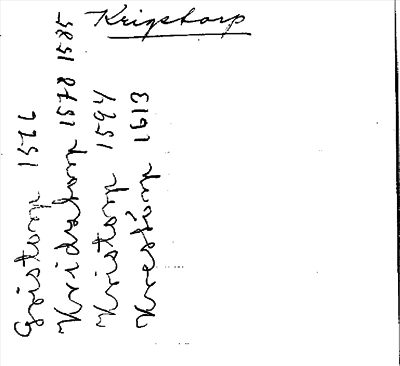 Krigstorp
Gristorp 1566
Kridzstorp 1578 1585
Kristorp 1594
Krestorp 1613